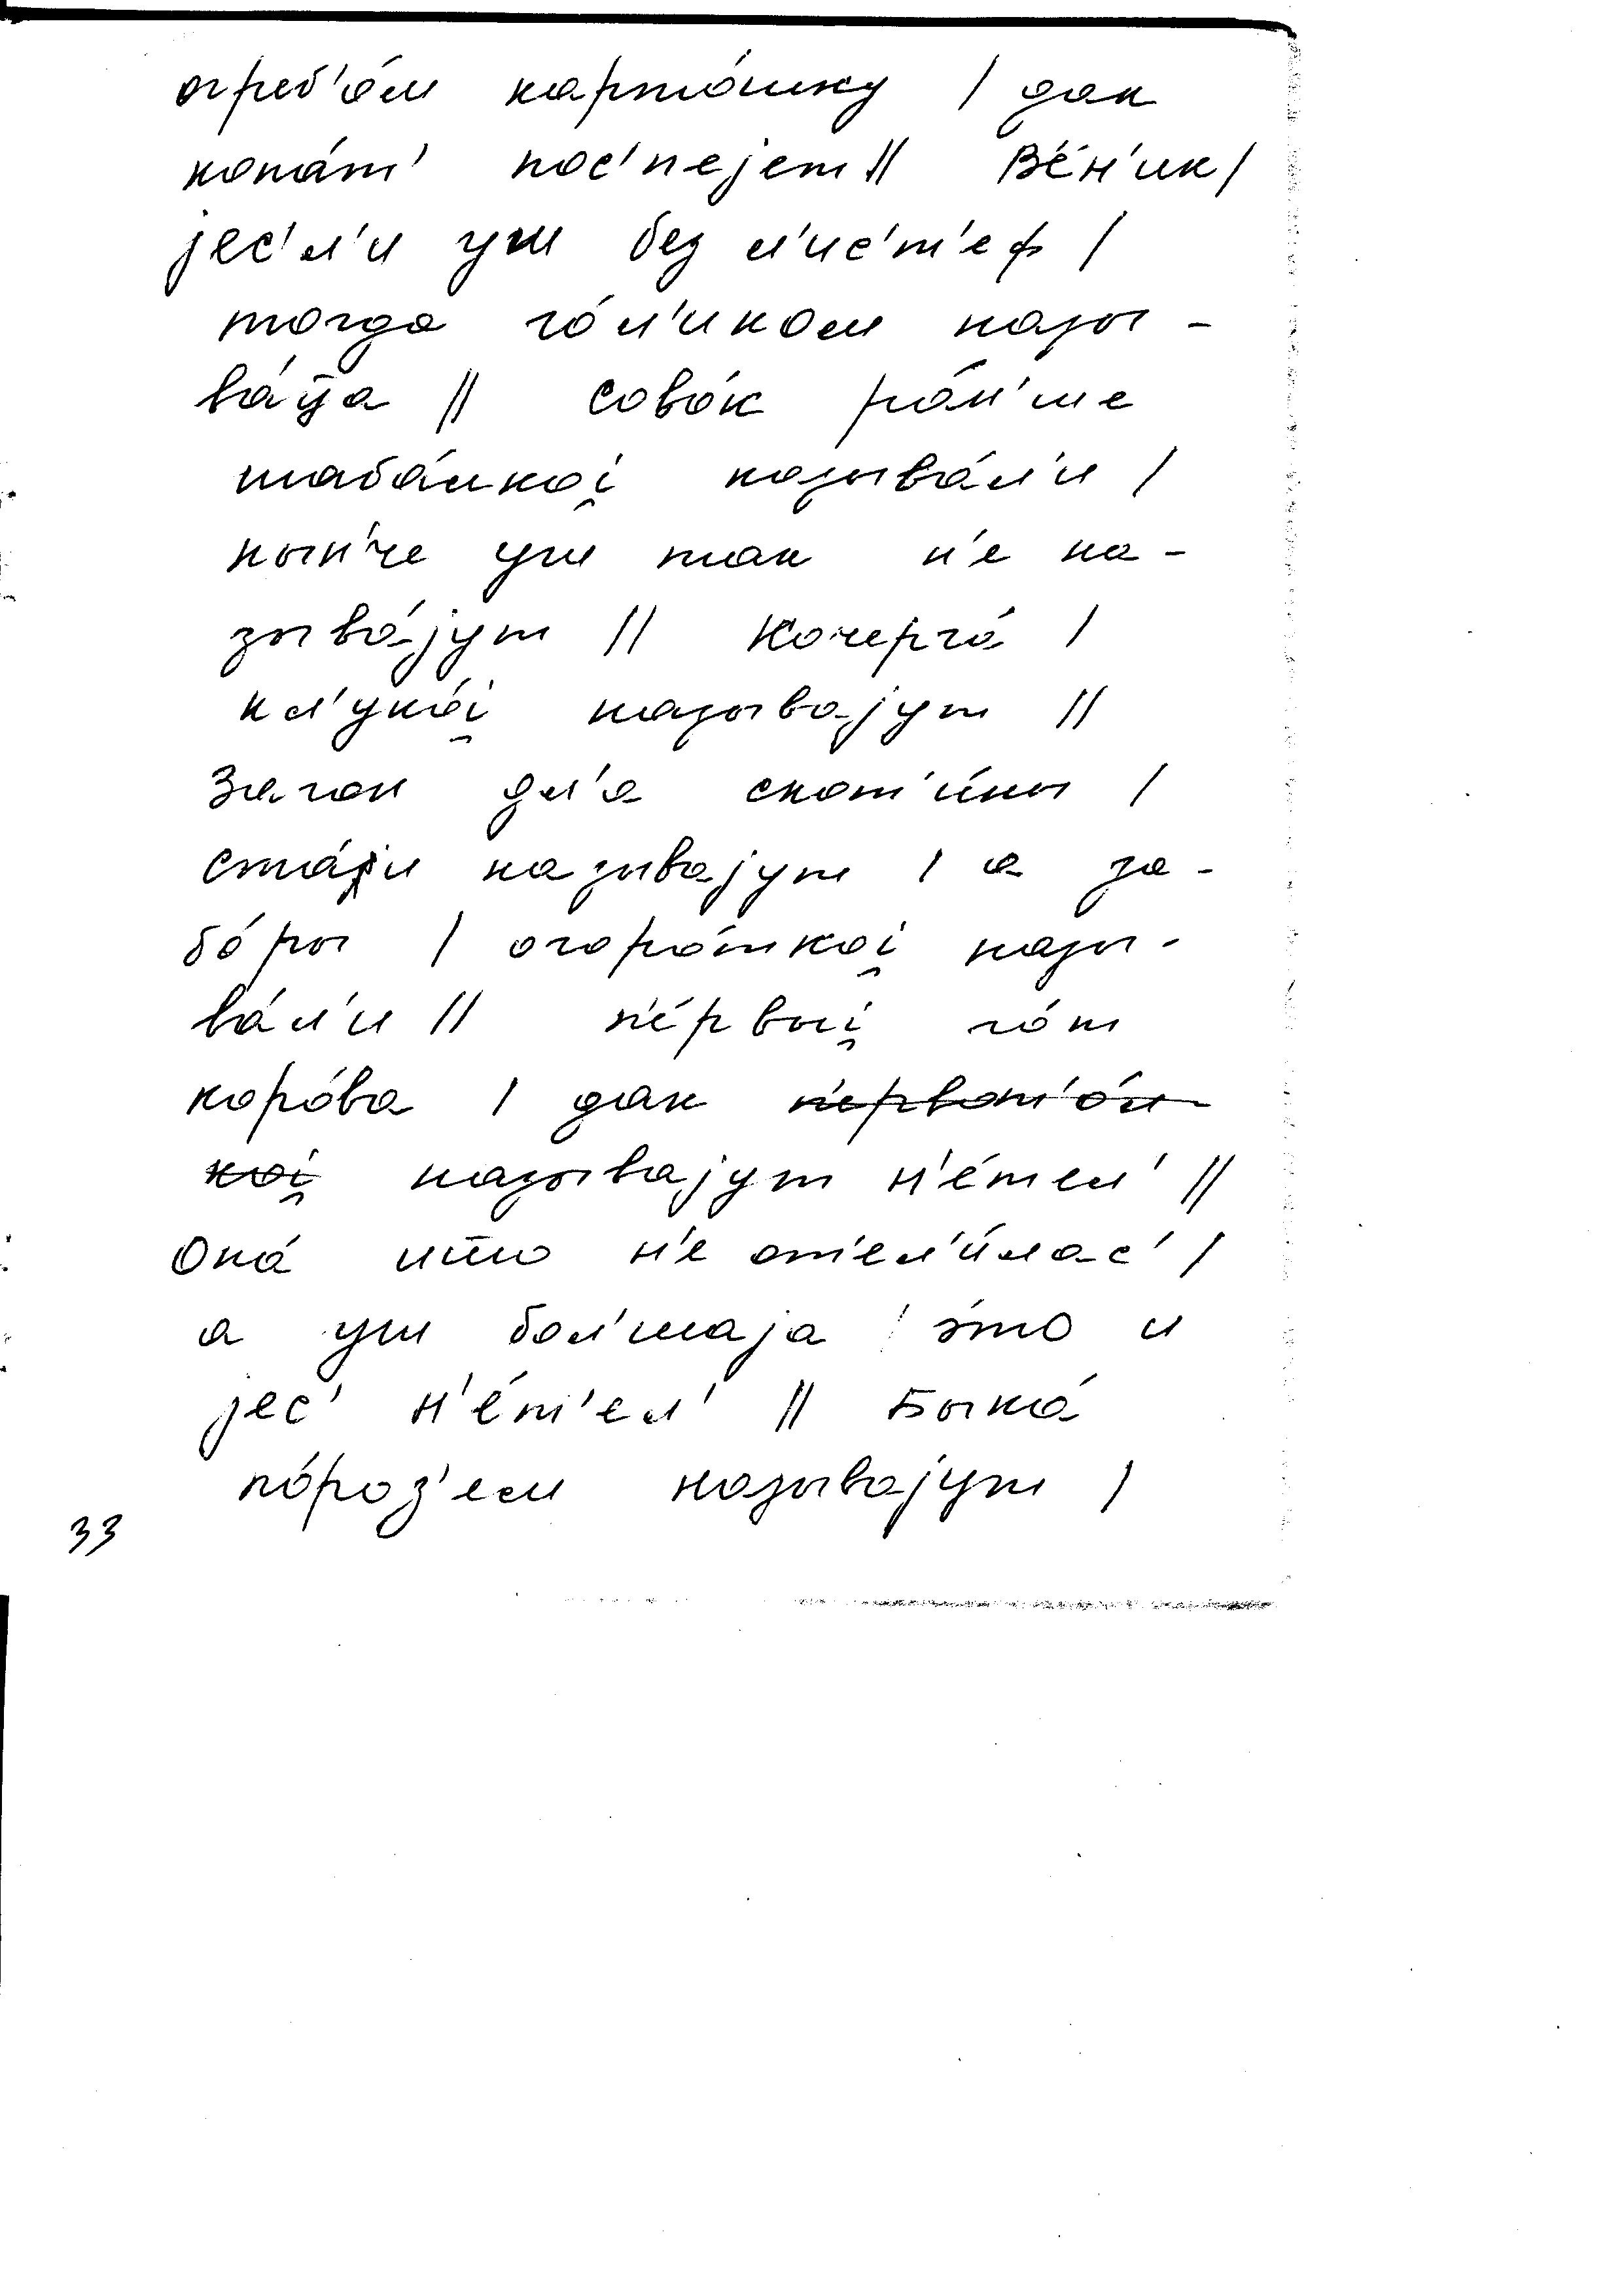 огреб'о́м карто́шку / дак
копа́т' пос'пејем // В'е́н'ик /
јес'л'и уш без л'ис'т'еф /
тогда го́л'иком назы-
ва́ц̄а // совок ра́н'ше
шаба́лкоі̯ называ́л'и /
нын'че уш так н'е на-
зыва́јут // Кочерга́ /
кл'уко́і̯ называјут //
Загон дл'а скот'и́ны /
ста́ји называјут / а за-
бо́ры / огоро́ткоі̯ назы-
ва́л'и // п'е́рвыі̯ го́т
коро́ва / дак п'ервот'о́л
коі̯ называјут н'е́тел' //
Она́ ишшо н'е отел'и́лас' /
а уш бол'шаја / э́то и
јес' н'е́т'ел' // Быка́
по́роз'ем называјут /
33